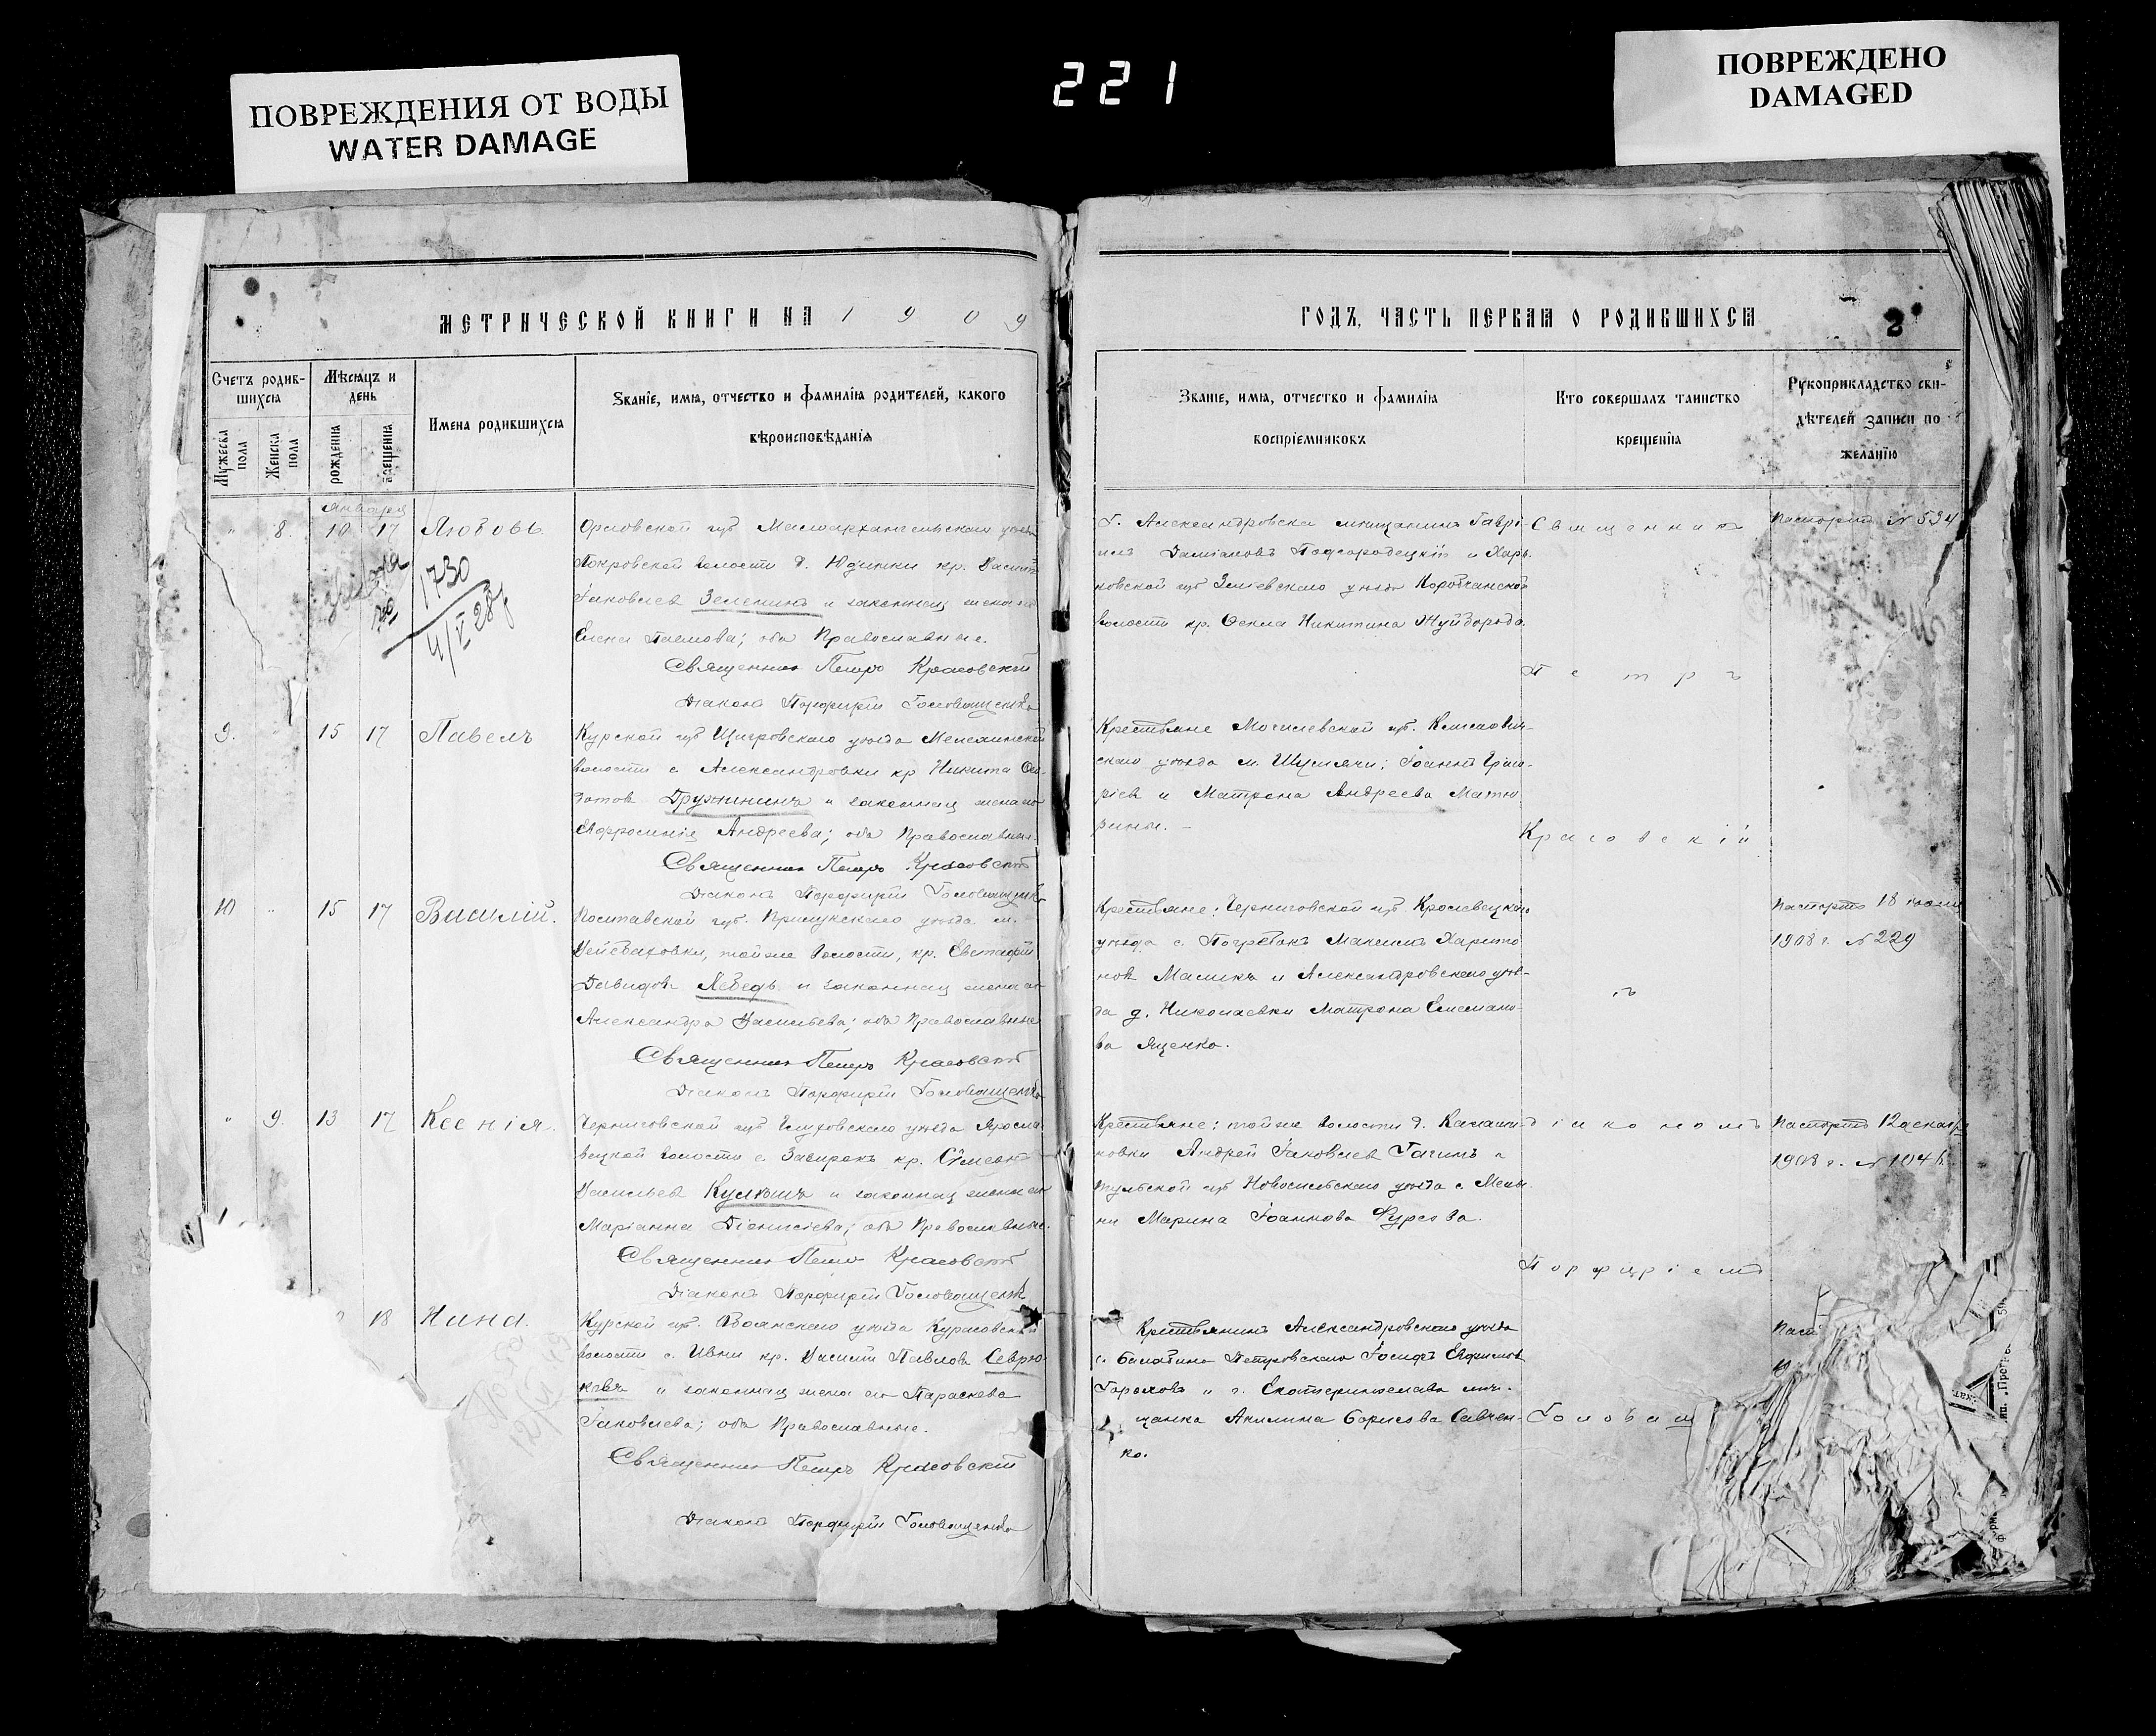 ПОВРЕЖДЕНИЯ ОТ ВОДЫ
WATER DAMAGE
221
ПОВРЕЖДЕНО
DAMAGED
МЕТРИЧЕСКОЙ КНИГИ НА 1909
Счетъ родив-
шихся
Мѣсяцъ и
день
Мужеска
пола
Женска
пола
рожденія
крещенія
Имена родившихся
Званіе, имя, отчество и фамилія родителей, какого
вѣроисповѣданія
Января
" 8. 10 17 Любовь
1730
4/V 28
Орловской губ Малоархангельскаго уѣзда
Покровской волости д. Юдинки кр. Василій
Іаковлев Зеленинъ и законная жена его
Елена Павлова; оба Православные.
Священникъ Петръ Красовскій
Діаконъ Порфирій Головащенко
9. 15 17 Павелъ
Курской губ Щигровскаго уѣзда
волости с. Александровки кр Никита Ѳео-
дотов Дружининъ и законная жена его
Евфросинія Андреева; оба Православные.
Священникъ Петръ Красовскій
Діаконъ Порфирій Головащенко
10 " 15 17 Василій.
Полтавской губ. Прилукскаго уѣзда м.
волости, кр. Евстафій
Давидовъ Лебедь и законная жена его
Александра Васильева; оба Православные
Священникъ Петръ Красовскій
Діаконъ Порфирій Головащенко
" 9. 13 17 Ксенія.
Черниговской губ Глуховскаго уѣзда Яросла-
вецкой волости с. Зазирокъ кр. Симеонъ
Васильев Кулешъ и законная жена его
Маріанна Діонисіева; оба Православные.
Священникъ Петръ Красовскій
Діаконъ Порфирій Головащенко
18 Нина.
Курской губ. Обоянскаго уѣзда Курасовской
волости с. Ивни кр. Василій Павловъ Севрю-
ковъ и законная жена его Параскева
Іаковлева; оба Православные.
Священникъ Петръ Красовскій
Діаконъ Порфирій Головащенко
ГОДЪ, ЧАСТЬ ПЕРВАЯ О РОДИВШИХСЯ
2
Званіе, имя, отчество и фамилія
воспріемниковъ
Кто совершалъ таинство
крещенія
Рукоприкладство сви-
дѣтелей записи по
желанію
Г. Александровска мѣщанинъ Гаврі-
илъ Даміановъ Подгородецкій и Харь-
ковской губ Зміевскаго уѣзда
волости кр. Ѳекла Никитина
Священникъ
Паспортъ № 534
Петръ
Крестьяне Могилевской губ. Климович-
скаго уѣзда м. Шумячи; Іоаннъ Григо-
ріев и Матрона Андреева Матю-
Красовскій
Крестьяне: Черниговской губ Кролевецкаго
уѣзда с. Погребокъ Максимъ Харито-
новъ Маликъ и Александровскаго уѣз-
да д. Николаевки Матрона
ва Яценко.
Паспортъ 18
1908 г. № 229
съ
Крестьяне: той же волости д. Калаши-
новки Андрей Іаковлев Гагинъ и
Тульской губ Новосильскаго уѣзда с.
Марина Іоаннова Фурсова.
діакономъ
Паспортъ 12 декабр
1908 г. № 1046
Порфиріемъ
Крестьянинъ Александровскаго уѣзда
Іосифъ Евфимовъ
Гороховъ и г. Екатеринослава мѣ-
щанка Акилина Борисова Савчен-
ко.
Головащ
Пасп